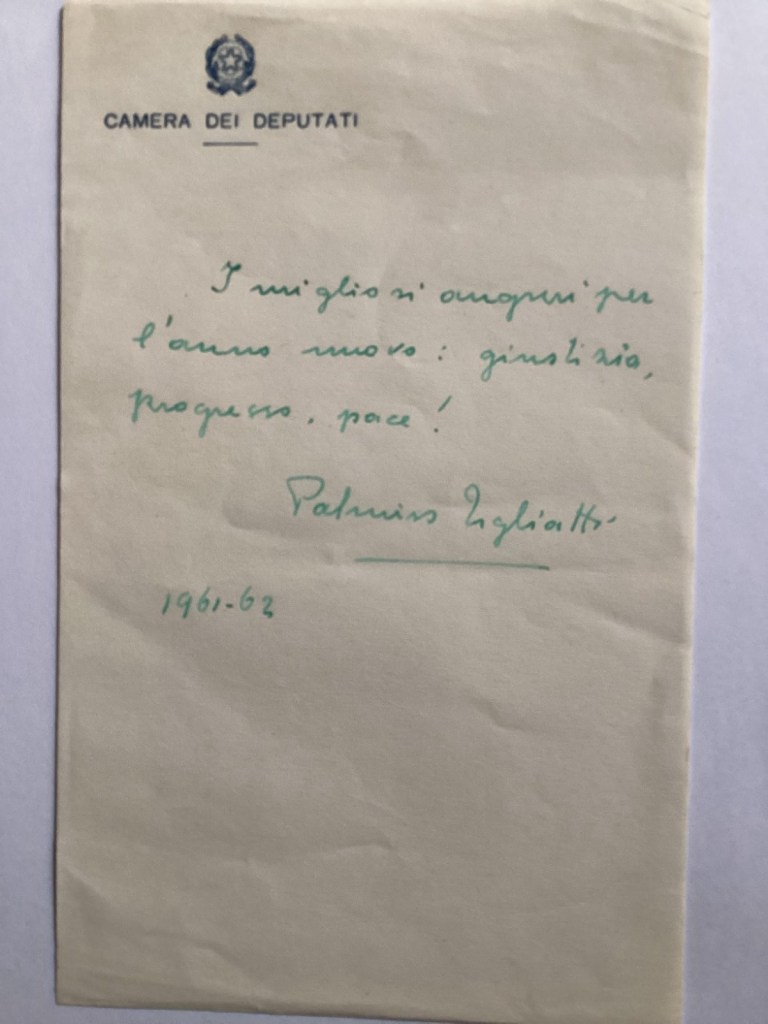 CAMERA DEI DEPUTATI
I migliori auguri per
l'anno nuovo: giustizia,
progresso, pace!
Palmiro Togliatti
1961-62